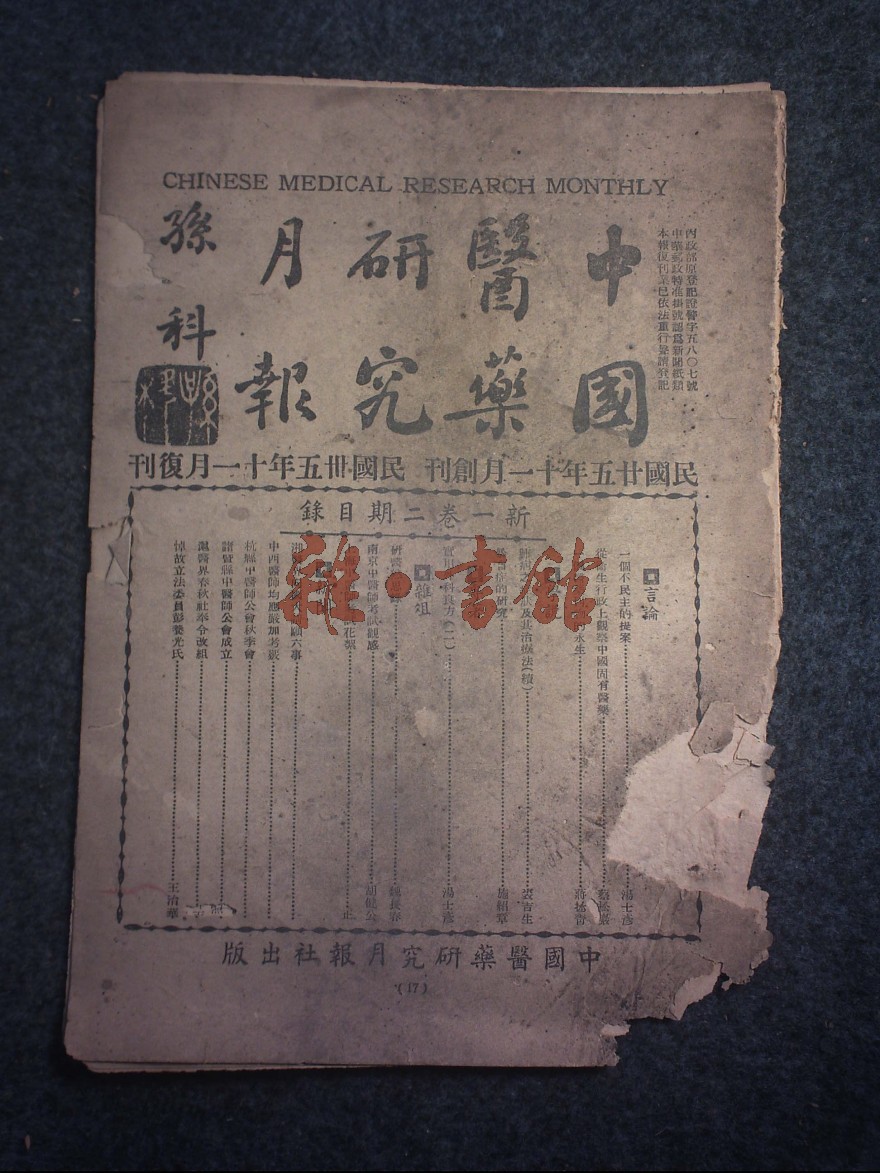 CHINESE MEDICAL RESEARCH MONTHLY
內政部原登記證警字五八〇七號
中華郵政特准掛號認爲新聞紙類
本報復刊業已依法重行聲請登記
中國
醫藥
研究
月報
孫科
民國廿五年十一月創刊 民國卅五年十一月復刊
新一卷二期目錄
言論
一個不民主的提案 湯士彥
從衛生行政上觀察中國固有醫藥
永生 蔣拯青
及其治療法(續) 裘吉生
的研究 施組
科良方(二) 湯士彥
雜俎
研醫 魏長春
南京中醫師考試觀感 胡健公
花絮 正
六事
中西醫師均應嚴加考覈
杭縣中醫師公會秋季會
諸暨縣中醫師公會成立
醫界春秋社奉令改組
悼故立法委員彭養光氏 王治華
雜·書館
中國醫藥研究月報社出版
(17)